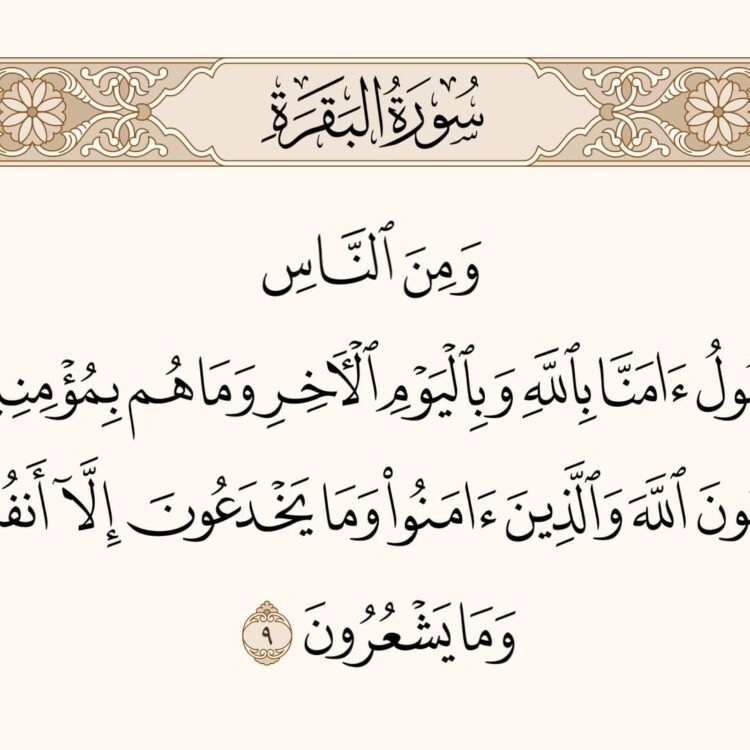 سُورَةُ الْبَقَرَةِ
وَمِنَ ٱلنَّاسِ
ولُ ءَامَنَّا بِٱللَّهِ وَبِٱلْيَوْمِ ٱلْأَخِرِ وَمَا هُم بِمُؤْمِنِي
ونَ ٱللَّهَ وَٱلَّذِينَ ءَامَنُوا۟ وَمَا يَخْدَعُونَ إِلَّآ أَنفُ
وَمَا يَشْعُرُونَ ٩